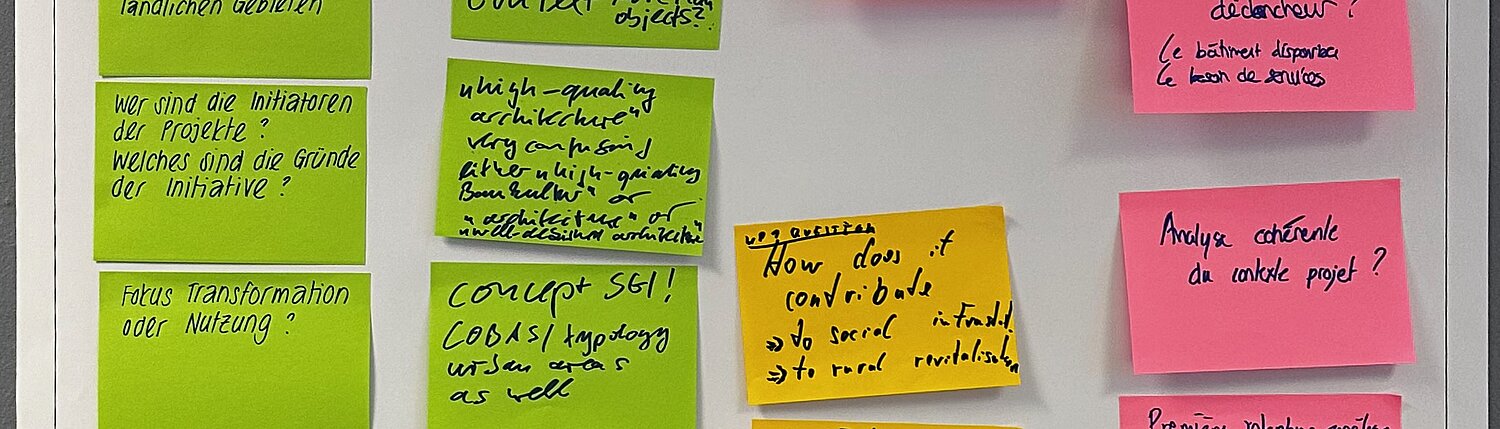 ländlichen Gebieten
Wer sind die Initiatoren
der Projekte?
Welches sind die Gründe
der Initiative?
Fokus Transformation
oder Nutzung?
objects?
"high-quality
architecture"
very confusing
either "high-quality
Baukultur" or
"architecture" or
"well-designed architecture"
concept SGI!
COBAS/typology
urban areas
as well
How does it
contribute
=> to social infrastr.
=> to rural revitalisation
déclencheur?
Le bâtiment disponible
Le besoin de services
Analyse cohérente
du contexte projet?
Première